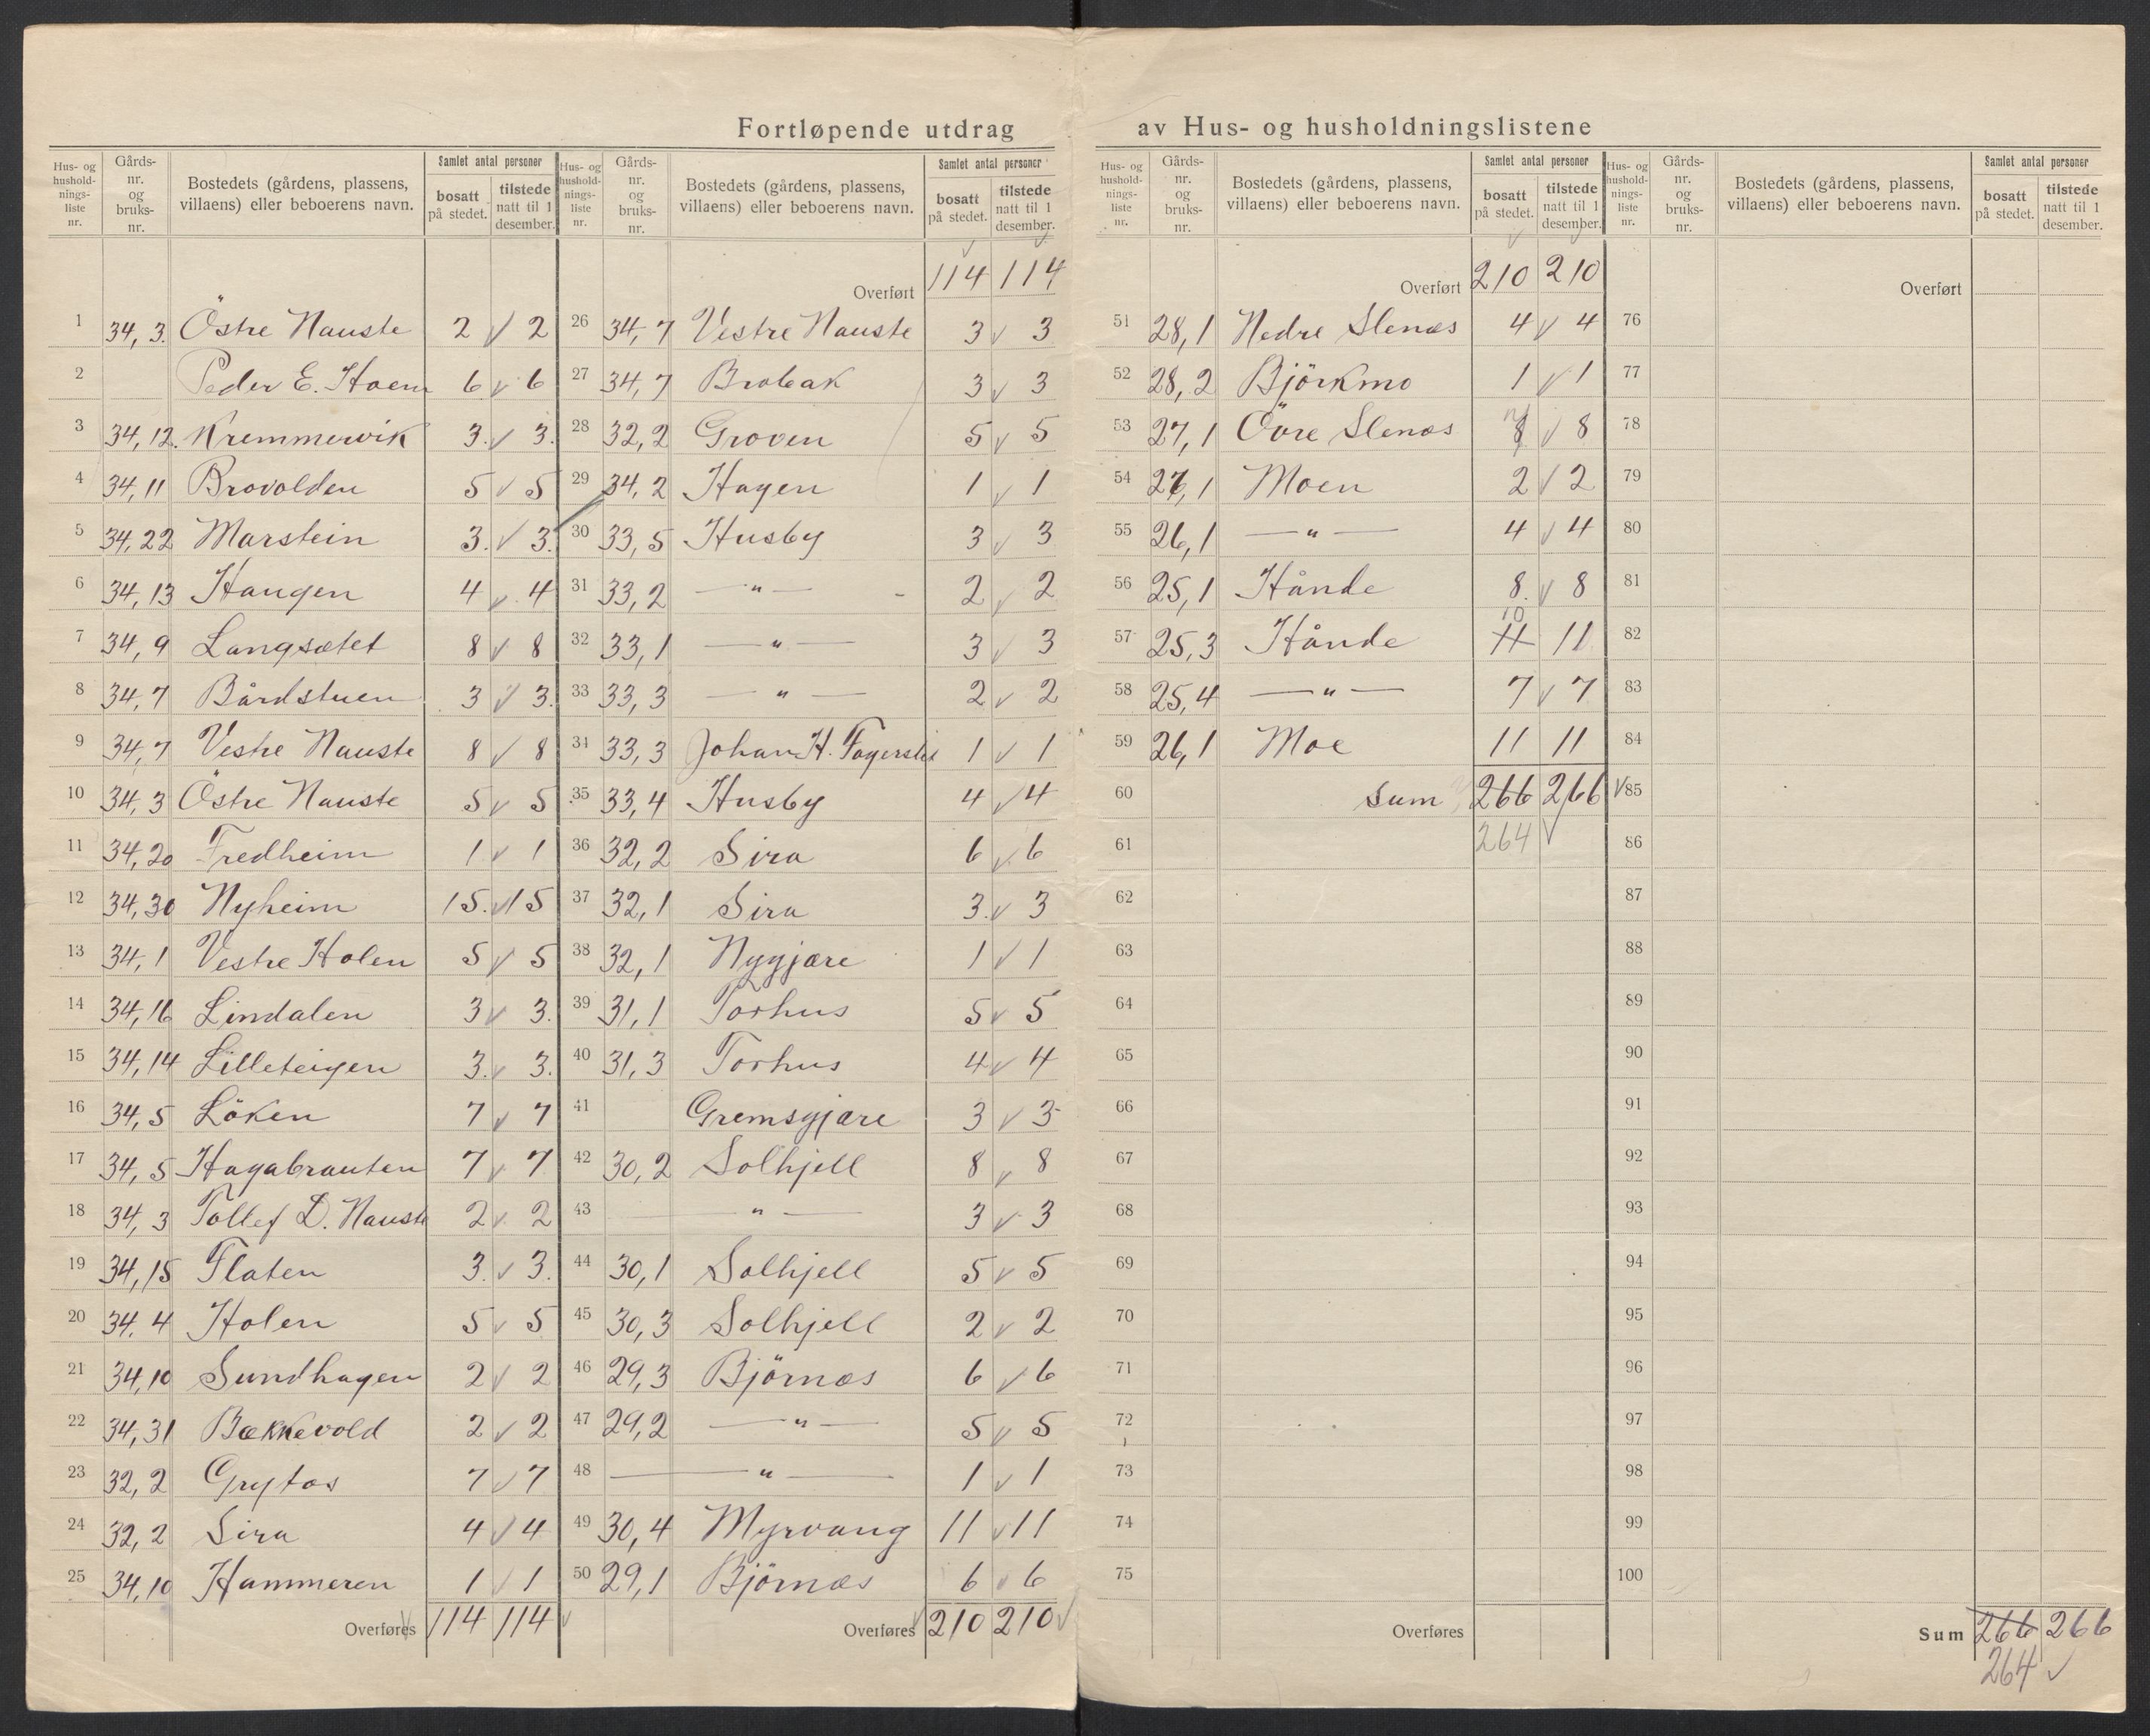 Fortløpende utdrag av Hus- og husholdningslistene
Hus- og hushold-nings-liste nr. | Gårds-nr. og bruks-nr. | Bostedets (gårdens, plassens, villaens) eller beboerens navn. | Samlet antal personer | bosatt på stedet. | tilstede natt til 1 desember.
1 34,3. Östre Nauste 2 v 2
2 Peder E. Hoem 6 v 6
3 34,12. Kremmervik 3. v 3.
4 34,11 Brovolden 5 v 5
5 34,22 Marstein 3. v 3.
6 34,13 Haugen 4 v 4
7 34,9 Langsætet 8 v 8
8 34,7 Bårdstuen 3 v 3.
9 34,7 Vestre Nauste 8 v 8
10 34,3 Östre Nauste 5 v 5
11 34,20 Fredheim 1 v 1
12 34,30 Nyheim 15. v 15
13 34,1 Vestre Holen 5 v 5
14 34,16 Lindalen 3 v 3.
15 34,14 Lilleteigen 3. v 3.
16 34,5 Löken 7 v 7
17 34,5 Hagabrauten 7 v 7
18 34,3 Tollef D. Nauste 2 v 2
19 34,15 Flaten 3. v 3.
20 34,4 Holen 5 v 5
21 34,10 Sundhagen 2 v 2
22 34,31 Bækkevold 2 v 2
23 32,2 Grytås 7 v 7
24 32,2 Sira 4 v 4
25 34,10 Hammeren 1 v 1
Overføres 114 114 v
Hus- og hushold-nings-liste nr. | Gårds-nr. og bruks-nr. | Bostedets (gårdens, plassens, villaens) eller beboerens navn. | Samlet antal personer | bosatt på stedet. | tilstede natt til 1 desember.
Overført 114 114
26 34,7 Vestre Nauste 3 v 3
27 34,7 Brobak 3 v 3
28 32,2 Groven 5 v 5
29 34,2 Hagen 1 v 1
30 33,5 Husby 3 v 3
31 33,2 — " — 2 v 2
32 33,1 — " — 3 v 3
33 33,3 — " — 2 v 2
34 33,3 Johan H. 1 v 1
35 33,4 Husby 4 v 4
36 32,2 Sira 6 v 6
37 32,1 Sira 3. v 3
38 32,1 Nygjære 1 v 1
39 31,1 Torhus 5 v 5
40 31,3 Torhus 4 v 4
41 Gremsgjære 3 v 3
42 30,2 Solhjell 8 v 8
43 — " — 3 v 3
44 30,1 Solhjell 5 v 5
45 30,3 Solhjell 2 v 2
46 29,3 Björnæs 6 v 6
47 29,2 — " — 5 v 5
48 — " — 1 v 1
49 30,4 Myrvang 11 v 11
50 29,1 Björnæs 6 v 6
Overføres 210 210 v
Hus- og hushold-nings-liste nr. | Gårds-nr. og bruks-nr. | Bostedets (gårdens, plassens, villaens) eller beboerens navn. | Samlet antal personer | bosatt på stedet. | tilstede natt til 1 desember.
Overført 210 210
51 28,1 Nedre Slenæs 4 v 4
52 28,2 Björkmo 1 v 1
53 27,1 Övre Slenæs 8 v 8
54 27,1 Moen 2 v 2
55 26,1 — " — 4 v 4
56 25,1 Hånde 8. v 8
57 25,3 Hånde 11 10 11
58 25,4 — " — 7 v 7
59 26,1 Moe 11 11
60 Sum 266 266 v
61 264 v
62
63
64
65
66
67
68
69
70
71
72
73
74
75
Overføres
Hus- og hushold-nings-liste nr. | Gårds-nr. og bruks-nr. | Bostedets (gårdens, plassens, villaens) eller beboerens navn. | Samlet antal personer | bosatt på stedet. | tilstede natt til 1 desember.
Overført
76
77
78
79
80
81
82
83
84
85
86
87
88
89
90
91
92
93
94
95
96
97
98
99
100
Sum 266 266
264 v